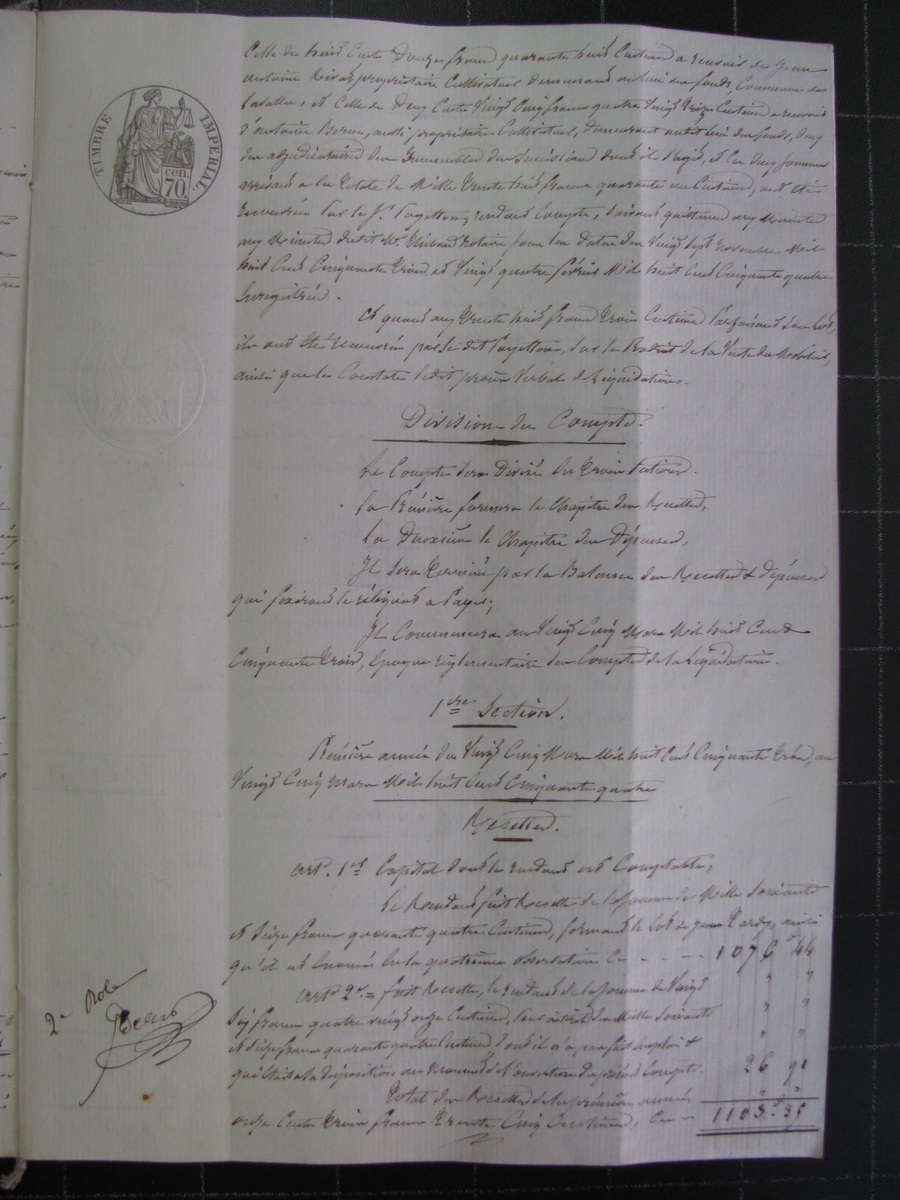 Celle de huit Cents Douze francs quarante huit Centimes a recevoir de Jean
antoine propriétaire Cultivateur Demeurant au lieu des fonds, Commune de
et Celle de Deux Cents Vingt Cinq francs quatre Vingt treize Centimes a recevoir
D'antoine aussi propriétaire Cultivateur, demeurant audit lieu des fonds, Deux
des adjudicataires des Immeubles des Successions dont il s'agit, et Ces deux sommes
arrivant a la totale de Mille trente huit francs quarante un Centimes, ont été
recouvrées par le Sr. Payetton, rendant Compte, Suivant quittances aux Minutes
aux Minutes dudit Me. notaire Sous les Dates des Vingt Sept novembre Mil
huit Cent Cinquante trois et Vingt quatre février Mil huit Cent Cinquante quatre
Enregistrées.
Et quant aux trente huit francs trois Centimes Parfaisant Son Lot,
ils ont été recouvrés par le dit Payetton, Sur le Produit de la Vente du Mobilier,
ainsi que les Constate ledit procès Verbal de Liquidation.
Division du Compte.
Le Compte Sera Divisé en trois Sections.
La Première formera le Chapitre des Recettes,
La Deuxième le Chapitre des Dépenses,
Il Sera terminé par la Balance des Recettes & dépenses
qui fixeront le réliquat a Payer;
Il Commencera au Vingt Cinq Mars Mil huit Cent
Cinquante trois, Epoque réglementaire des Comptes de la Liquidation.
1ere Section.
Première année du Vingt Cinq Mars Mil huit Cent Cinquante trois, au
Vingt Cinq mars Mil huit Cent Cinquante quatre
Recettes.
art. 1er Capital dont le rendant est Comptable,
Le Rendant fait Recette de la Somme de Mille Soixante
et Seize francs quarante quatre Centimes, formant le Lot de Jean ainsi
qu'il est Enoncé En la quatrième observation Ci - - - - 1076 44
art. 2e. = fait Recette, le rendant de la Somme de Vingt " "
Six francs quatre vingt onze Centimes, Pour intérêt des Mille Soixante " "
et Seize francs quarante quatre Centimes dont il n'a pas fait Emploi & " "
qui Etait a la disposition au moment de l'ouverture du présent Compte. 26 91
Total des Recettes de la première année
onze Cents trois francs trente Cinq Centimes, Ci - 1103 f 35
2e Role
TIMBRE IMPERIAL.
70 cen.